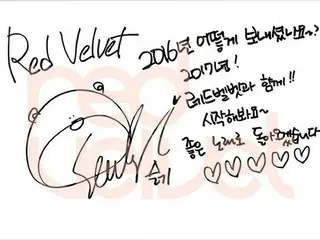 Red Velvet
2016년 어떻게 보내셨나요~?
2017년!
레드벨벳과 함께!!
시작해봐요~
좋은 노래로 돌아오겠습니다
♡♡♡♡♡
슬기